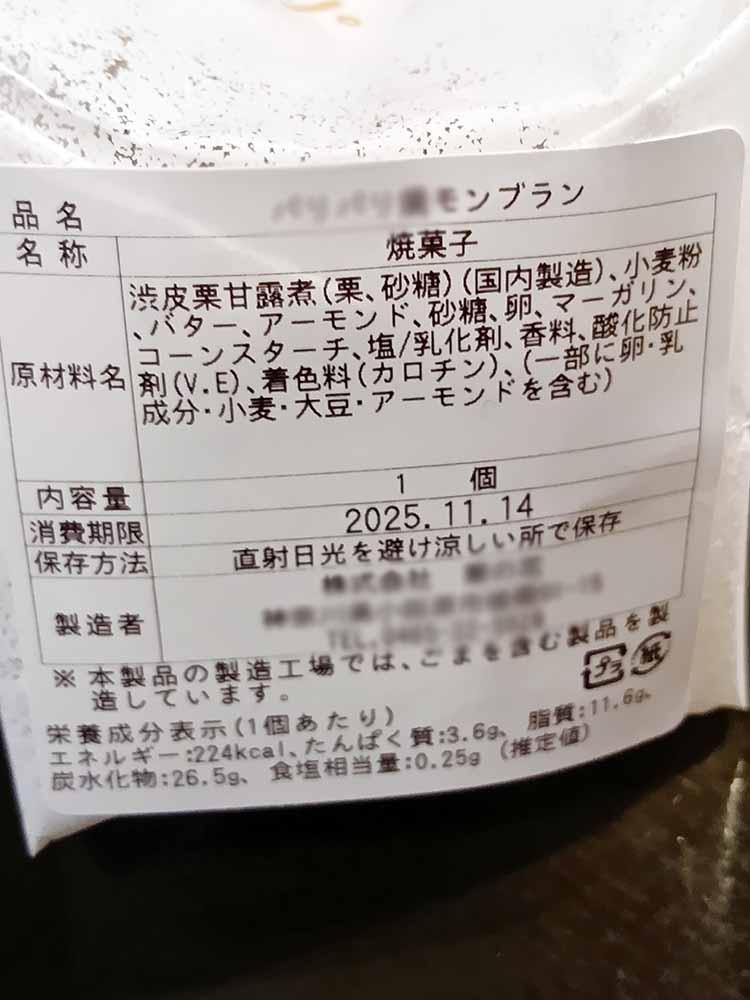 品名 モンブラン
名称 焼菓子
原材料名
渋皮栗甘露煮(栗、砂糖)(国内製造)、小麦粉
、バター、アーモンド、砂糖、卵、マーガリン、
コーンスターチ、塩/乳化剤、香料、酸化防止
剤(V.E)、着色料(カロチン)、(一部に卵・乳
成分・小麦・大豆・アーモンドを含む)
内容量 1 個
消費期限 2025.11.14
保存方法 直射日光を避け涼しい所で保存
製造者 株式会社
※本製品の製造工場では、ごまを含む製品を製
造しています。
プラ 紙
栄養成分表示(1個あたり)
エネルギー:224kcal、たんぱく質:3.6g、脂質:11.6g、
炭水化物:26.5g、食塩相当量:0.25g (推定値)